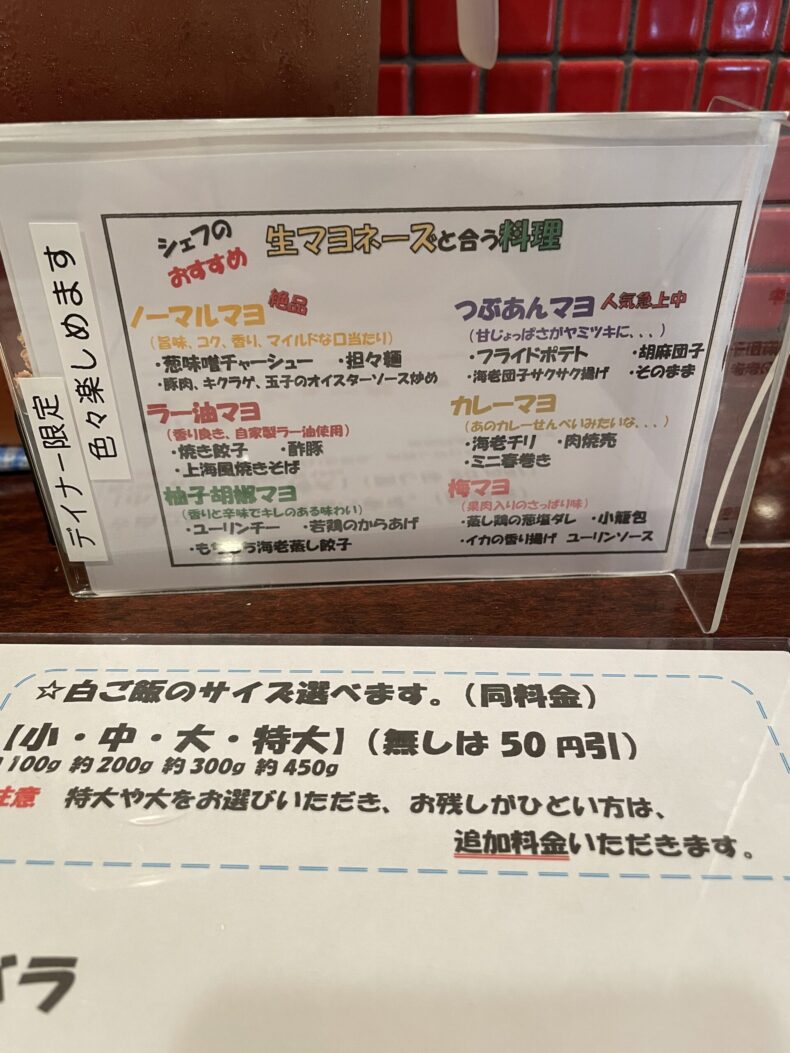 ディナー限定
色々楽しめます
シェフの
おすすめ
生マヨネーズと合う料理
ノーマルマヨ 絶品
(旨味、コク、香り、マイルドな口当たり)
・葱味噌チャーシュー ・担々麺
・豚肉、キクラゲ、玉子のオイスターソース炒め
ラー油マヨ
(香り良き、自家製ラー油使用)
・焼き餃子 ・酢豚
・上海風焼きそば
柚子胡椒マヨ
(香りと辛味でキレのある味わい)
・ユーリンチー ・若鶏のからあげ
・もちもち海老蒸し餃子
つぶあんマヨ 人気急上中
(甘じょっぱさがヤミツキに、、、)
・フライドポテト ・胡麻団子
・海老団子サクサク揚げ ・そのまま
カレーマヨ
(あのカレーせんべいみたいな、、、)
・海老チリ ・肉焼売
・ミニ春巻き
梅マヨ
(果肉入りのさっぱり味)
・蒸し鶏の葱塩ダレ ・小籠包
・イカの香り揚げ ユーリンソース
☆白ご飯のサイズ選べます。(同料金)
【小・中・大・特大】(無しは50円引)
100g 約200g 約300g 約450g
注意 特大や大をお選びいただき、お残しがひどい方は、
追加料金いただきます。
ラ